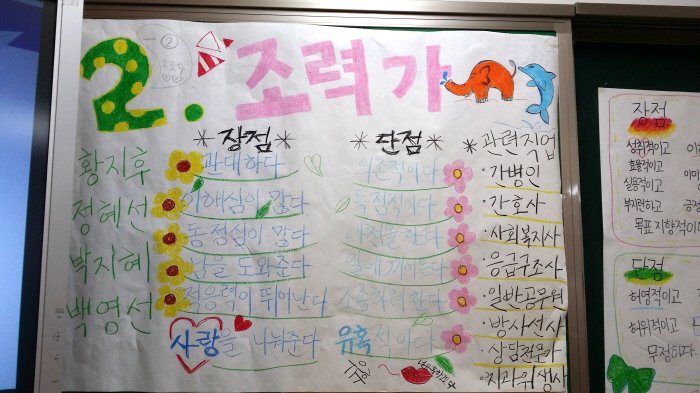 2. 조력가
*장점*
*단점*
*관련직업
황지후
정혜선
박지혜
백영선
관대하다
이해심이 많다
동정심이 많다
남을 도와준다
적응력이 뛰어난다
사랑을 나눠준다
의존적이다
독점적이다
유혹적이다
·간병인
·간호사
·사회복지사
·응급구조사
·일반공무원
·방사선사
·상담전문가
·치과위생사
장점
성취적이고
효율적이고
실용적이고
부지런하고
목표 지향적이
단점
허영적이고
허위적이고
무정하다